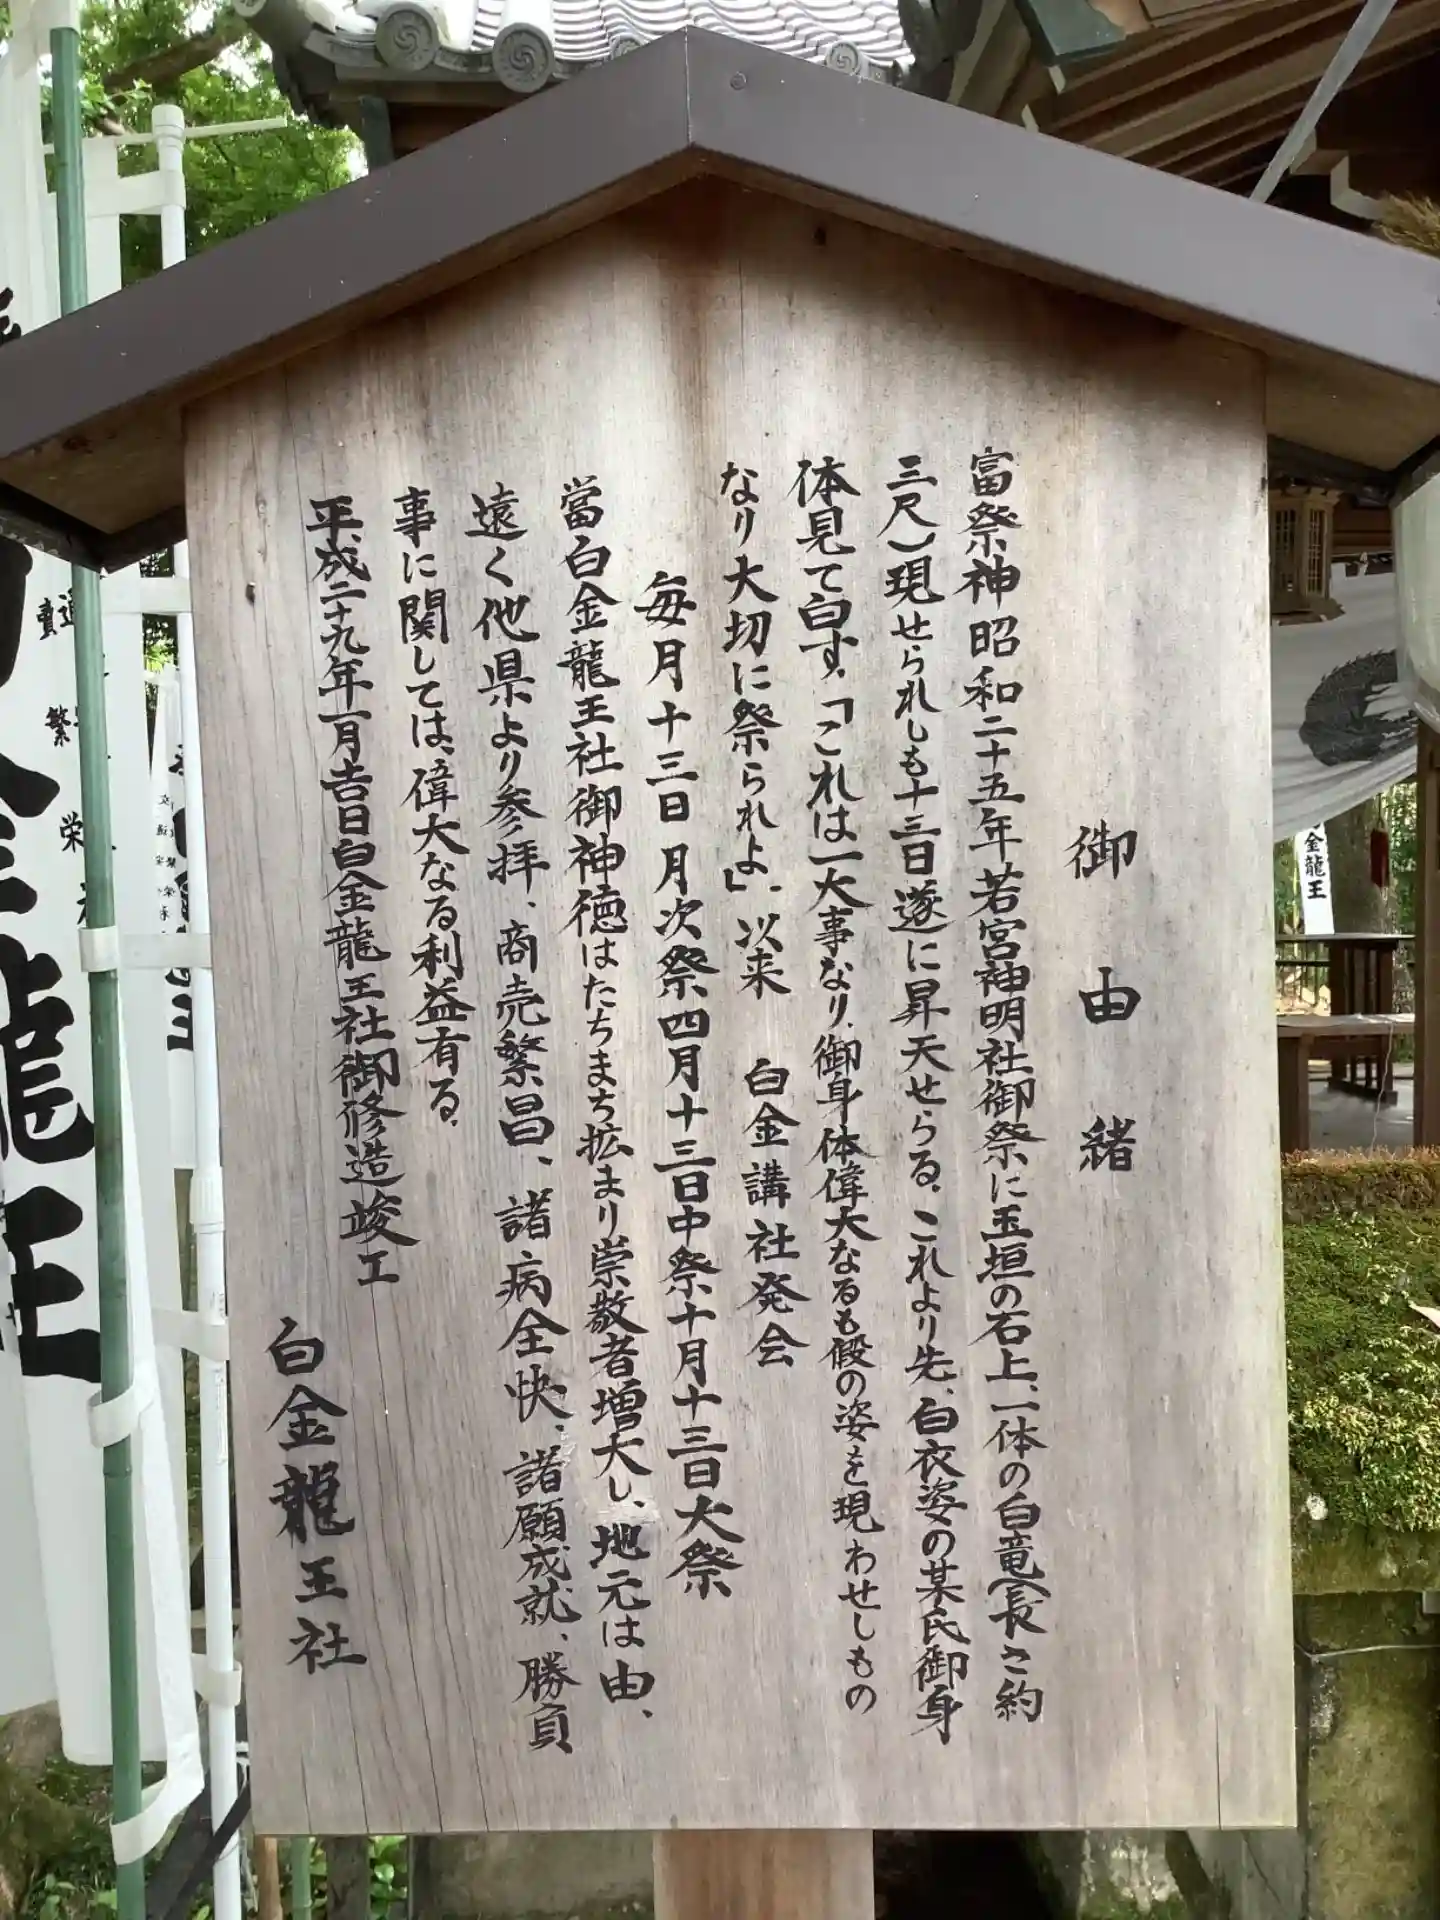 御由緒
富祭神昭和二十五年若宮神明社御祭に玉垣の石上、一体の白竜（長さ約
三尺）現せられしも十三日遂に昇天せらる。これより先、白衣姿の某氏御身
体見て白す、「これは一大事なり、御身体偉大なるも假の姿を現わせしもの
なり大切に祭られよ」、以来 白金講社発会
毎月十三日月次祭四月十三日中祭十月十三日大祭
當白金龍王社御神徳はたちまち拡まり崇敬者増大し、地元は由、
遠く他県より参拝、商売繁昌、諸病全快、諸願成就、勝負
事に関しては、偉大なる利益有る。
平成二十九年一月吉日白金龍王社御修造竣工
白金龍王社
金龍王
金龍王